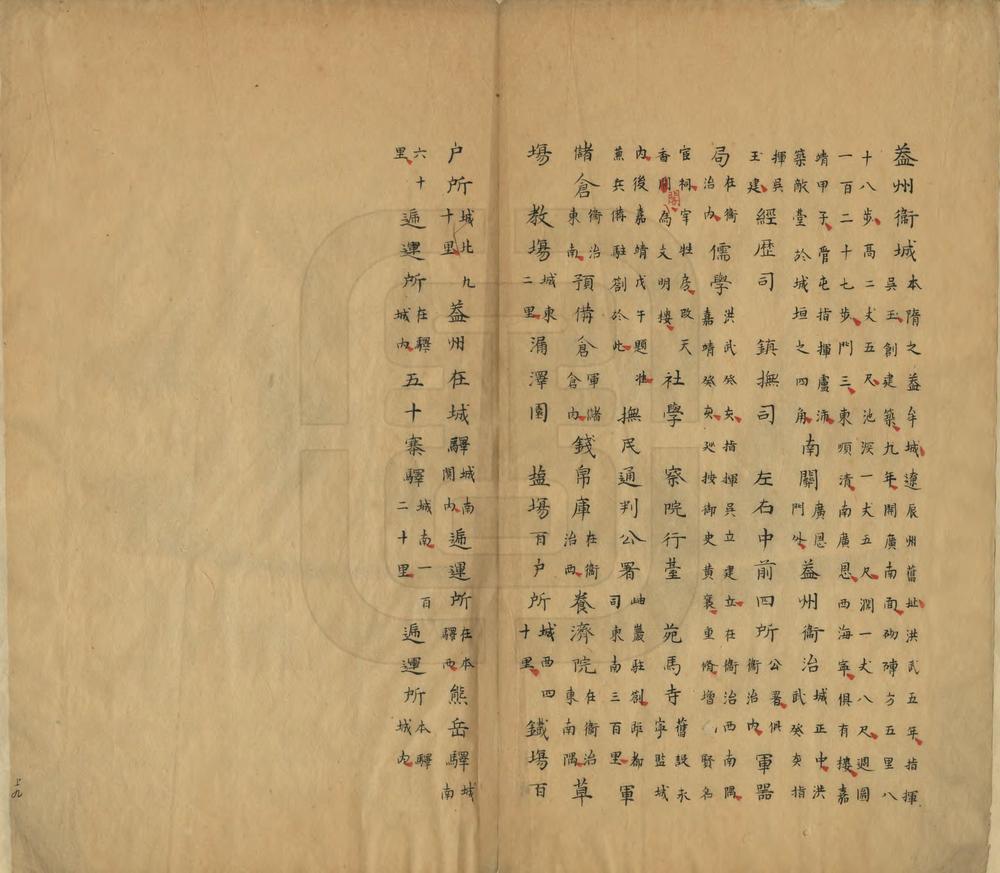 葢州衞城本隋之葢牟城遼辰州舊址洪武五年指揮
吳玉創建築九年開廣南面砌磚方五里八
十八步高二丈五尺池深一丈五尺濶一丈八尺週圍
一百二十七步門三東順清南廣恩西海寧俱有樓嘉
靖甲子管屯指揮盧沛築敵臺於城垣之四角南關廣恩門外葢州衞治城正中洪武癸亥指
揮吳玉建經歷司 鎮撫司 左右中前四所公署俱衞治内軍器
局在衞治内儒學洪武癸亥指揮吳立建立在衞治西南隅嘉靖癸亥廵按御史黄襄重脩增賢名
宦祠宰牲房改天香閣為文明樓社學 察院行臺 苑馬寺舊設永寧監城
内後嘉靖戊午題准兵備駐劄於此撫民通判公署岫巖駐劄距都司東南三百里軍
儲倉衞治東南預備倉軍儲倉内錢帛庫在衞治西養濟院在衞治東南隅草
場 教場城東二里漏澤園 塩場百户所城西四十里鐵場百
户所城北九十里葢州在城驛城南關内遞運所在本驛西熊岳驛城南
六十里遞運所在驛城内五十寨驛城南一百二十里遞運所本驛城内